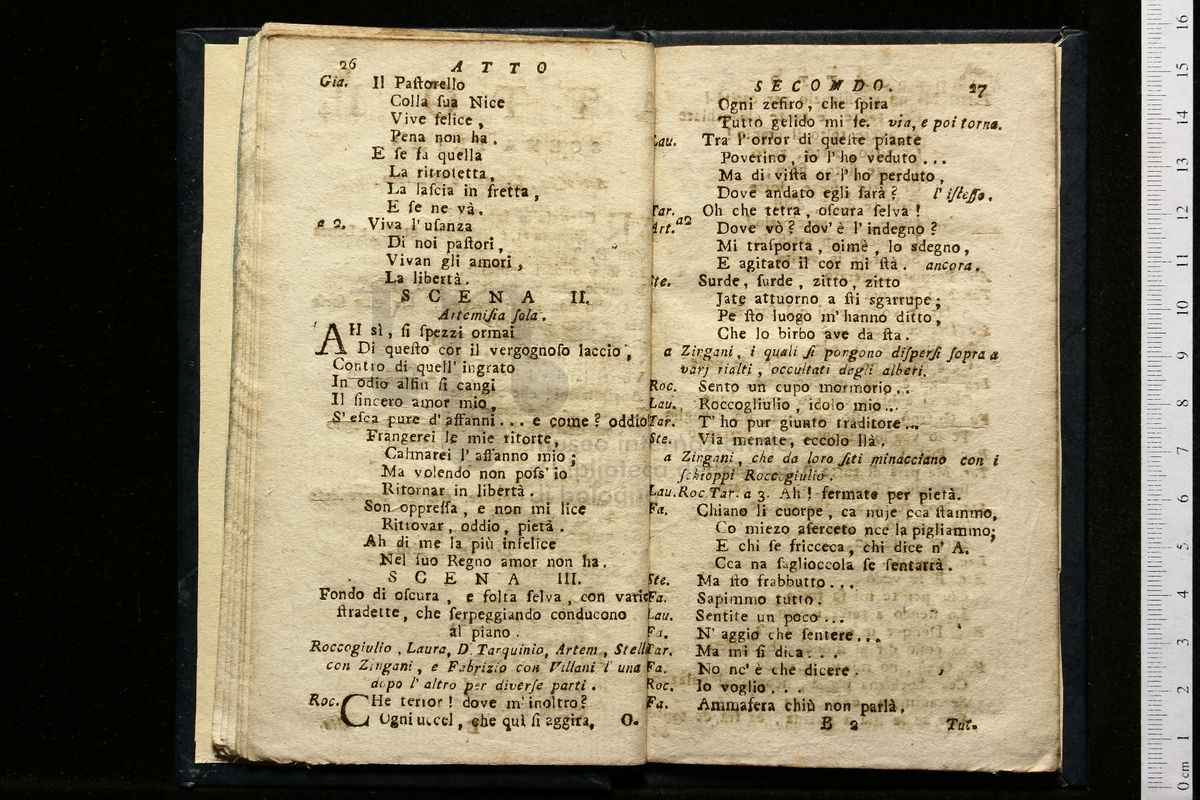 26 ATTO
Gia. Il Paſtorello
Colla ſua Nice
Vive felice,
Pena non ha.
E ſe fa quella
La ritroſetta,
La laſcia in fretta,
E ſe ne và.
a 2. Viva l'uſanza
Di noi paſtori,
Vivan gli amori,
La libertà.
SCENA II.
Artemiſia ſola.
AH sì, ſi ſpezzi ormai
Di queſto cor il vergognoſo laccio,
Contro di quell' ingrato
In odio alfin ſi cangi
Il ſincero amor mio,
S' eſca pure d'affanni... e come? oddio
Frangerei le mie ritorte,
Calmarei l' affanno mio;
Ma volendo non poſs' io
Ritornar in libertà.
Son oppreſſa, e non mi lice
Ritrovar, oddio, pietà.
Ah di me la più infelice
Nel ſuo Regno amor non ha.
SCENA III.
Fondo di oſcura, e folta ſelva, con varie
ſtradette, che ſerpeggiando conducono
al piano.
Roccogiulio, Laura, D. Tarquinio, Artem, Stell
con Zingani, e Fabrizio con Villani l' una
dopo l' altro per diverſe parti.
Roc. CHe terror! dove m'inoltro?
Ogni uccel, che quì ſi aggira, O.
SECONDO. 27
Ogni zefiro, che ſpira
Tutto gelido mi fe. via, e poi torna.
Lau. Tra l' orror di queſte piante
Poverino, io l' ho veduto...
Ma di viſta or l' ho perduto,
Dove andato egli ſarà? l' iſteſſo.
Tar. Oh che tetra, oſcura ſelva!
Art. a2 Dove vò? dov' è l' indegno?
Mi traſporta, oimè, lo sdegno,
E agitato il cor mi ſtà. ancora.
Ste. Surde, ſurde, zitto, zitto
Jate attuorno a ſti sgarrupe;
Pe ſto luogo m' hanno ditto,
Che lo birbo ave da ſta.
a Zingani, i quali ſi pongono diſperſi ſopra a
varj rialti, occultati dagli alberi.
Roc. Sento un cupo mormorio...
Lau. Roccogliulio, idolo mio...
Tar. T' ho pur giunto traditore...
Ste. Via menate, eccolo llà.
a Zingani, che da loro ſiti minacciano con i
ſchioppi Roccogiulio.
Lau. Roc. Tar. a 3. Ah! fermate per pietà.
Fa. Chiano li cuorpe, ca nuje cca ſtammo,
Co miezo aſerceto nce la pigliammo;
E chi ſe fricceca, chi dice n' A.
Cca na ſaglioccola ſe ſentarrà.
Ste. Ma ſto frabbutto...
Fa. Sapimmo tutto.
Lau. Sentite un poco...
Fa. N' aggio che ſentere...
Tar. Ma mi ſi dica...
Fa. No nc' è che dicere.
Roc. Io voglio...
Fa. Ammaſera chiù non parlà.
B 2 Tut.